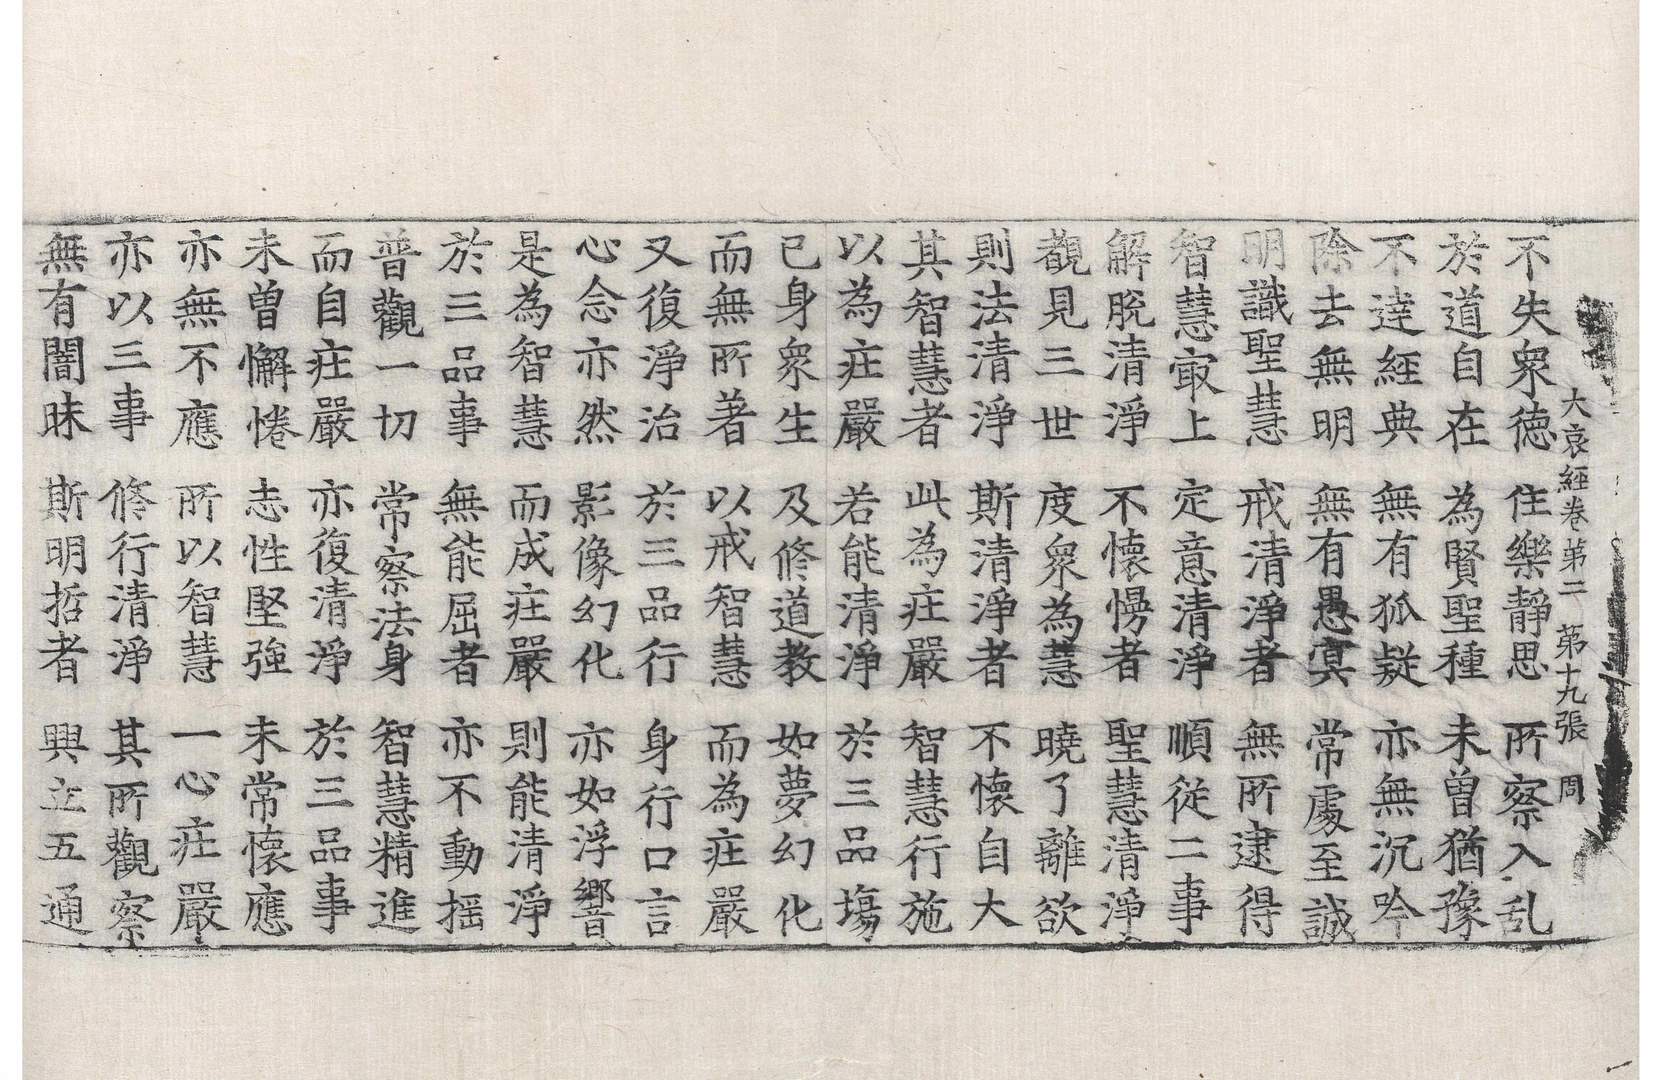 大哀經卷第二　第十九張　周
不失衆德　住樂靜思　所察入乱
於道自在　為賢聖種　未曽猶豫
不達經典　無有狐疑　亦無沉吟
除去無明　無有愚冥　常處至誠
明識聖慧　戒清淨者　無所逮得
智慧㝡上　定意清淨　順從二事
解脫清淨　不懷慢者　聖慧清淨
觀見三世　度衆為慧　曉了離欲
則法清淨　斯清淨者　不懷自大
其智慧者　此為庄嚴　智慧行施
以為庄嚴　若能清淨　於三品塲
已身衆生　及修道教　如夢幻化
而無所著　以戒智慧　而為庄嚴
又復淨治　於三品行　身行口言
心念亦然　影像幻化　亦如浮響
是為智慧　而成庄嚴　則能清淨
於三品事　無能屈者　亦不動揺
普觀一切　常察法身　智慧精進
而自庄嚴　亦復清淨　於三品事
未曽懈惓　志性堅強　未常懷應
亦無不應　所以智慧　一心庄嚴
亦以三事　修行清淨　其所觀察
無有闇昧　斯明哲者　興立五通